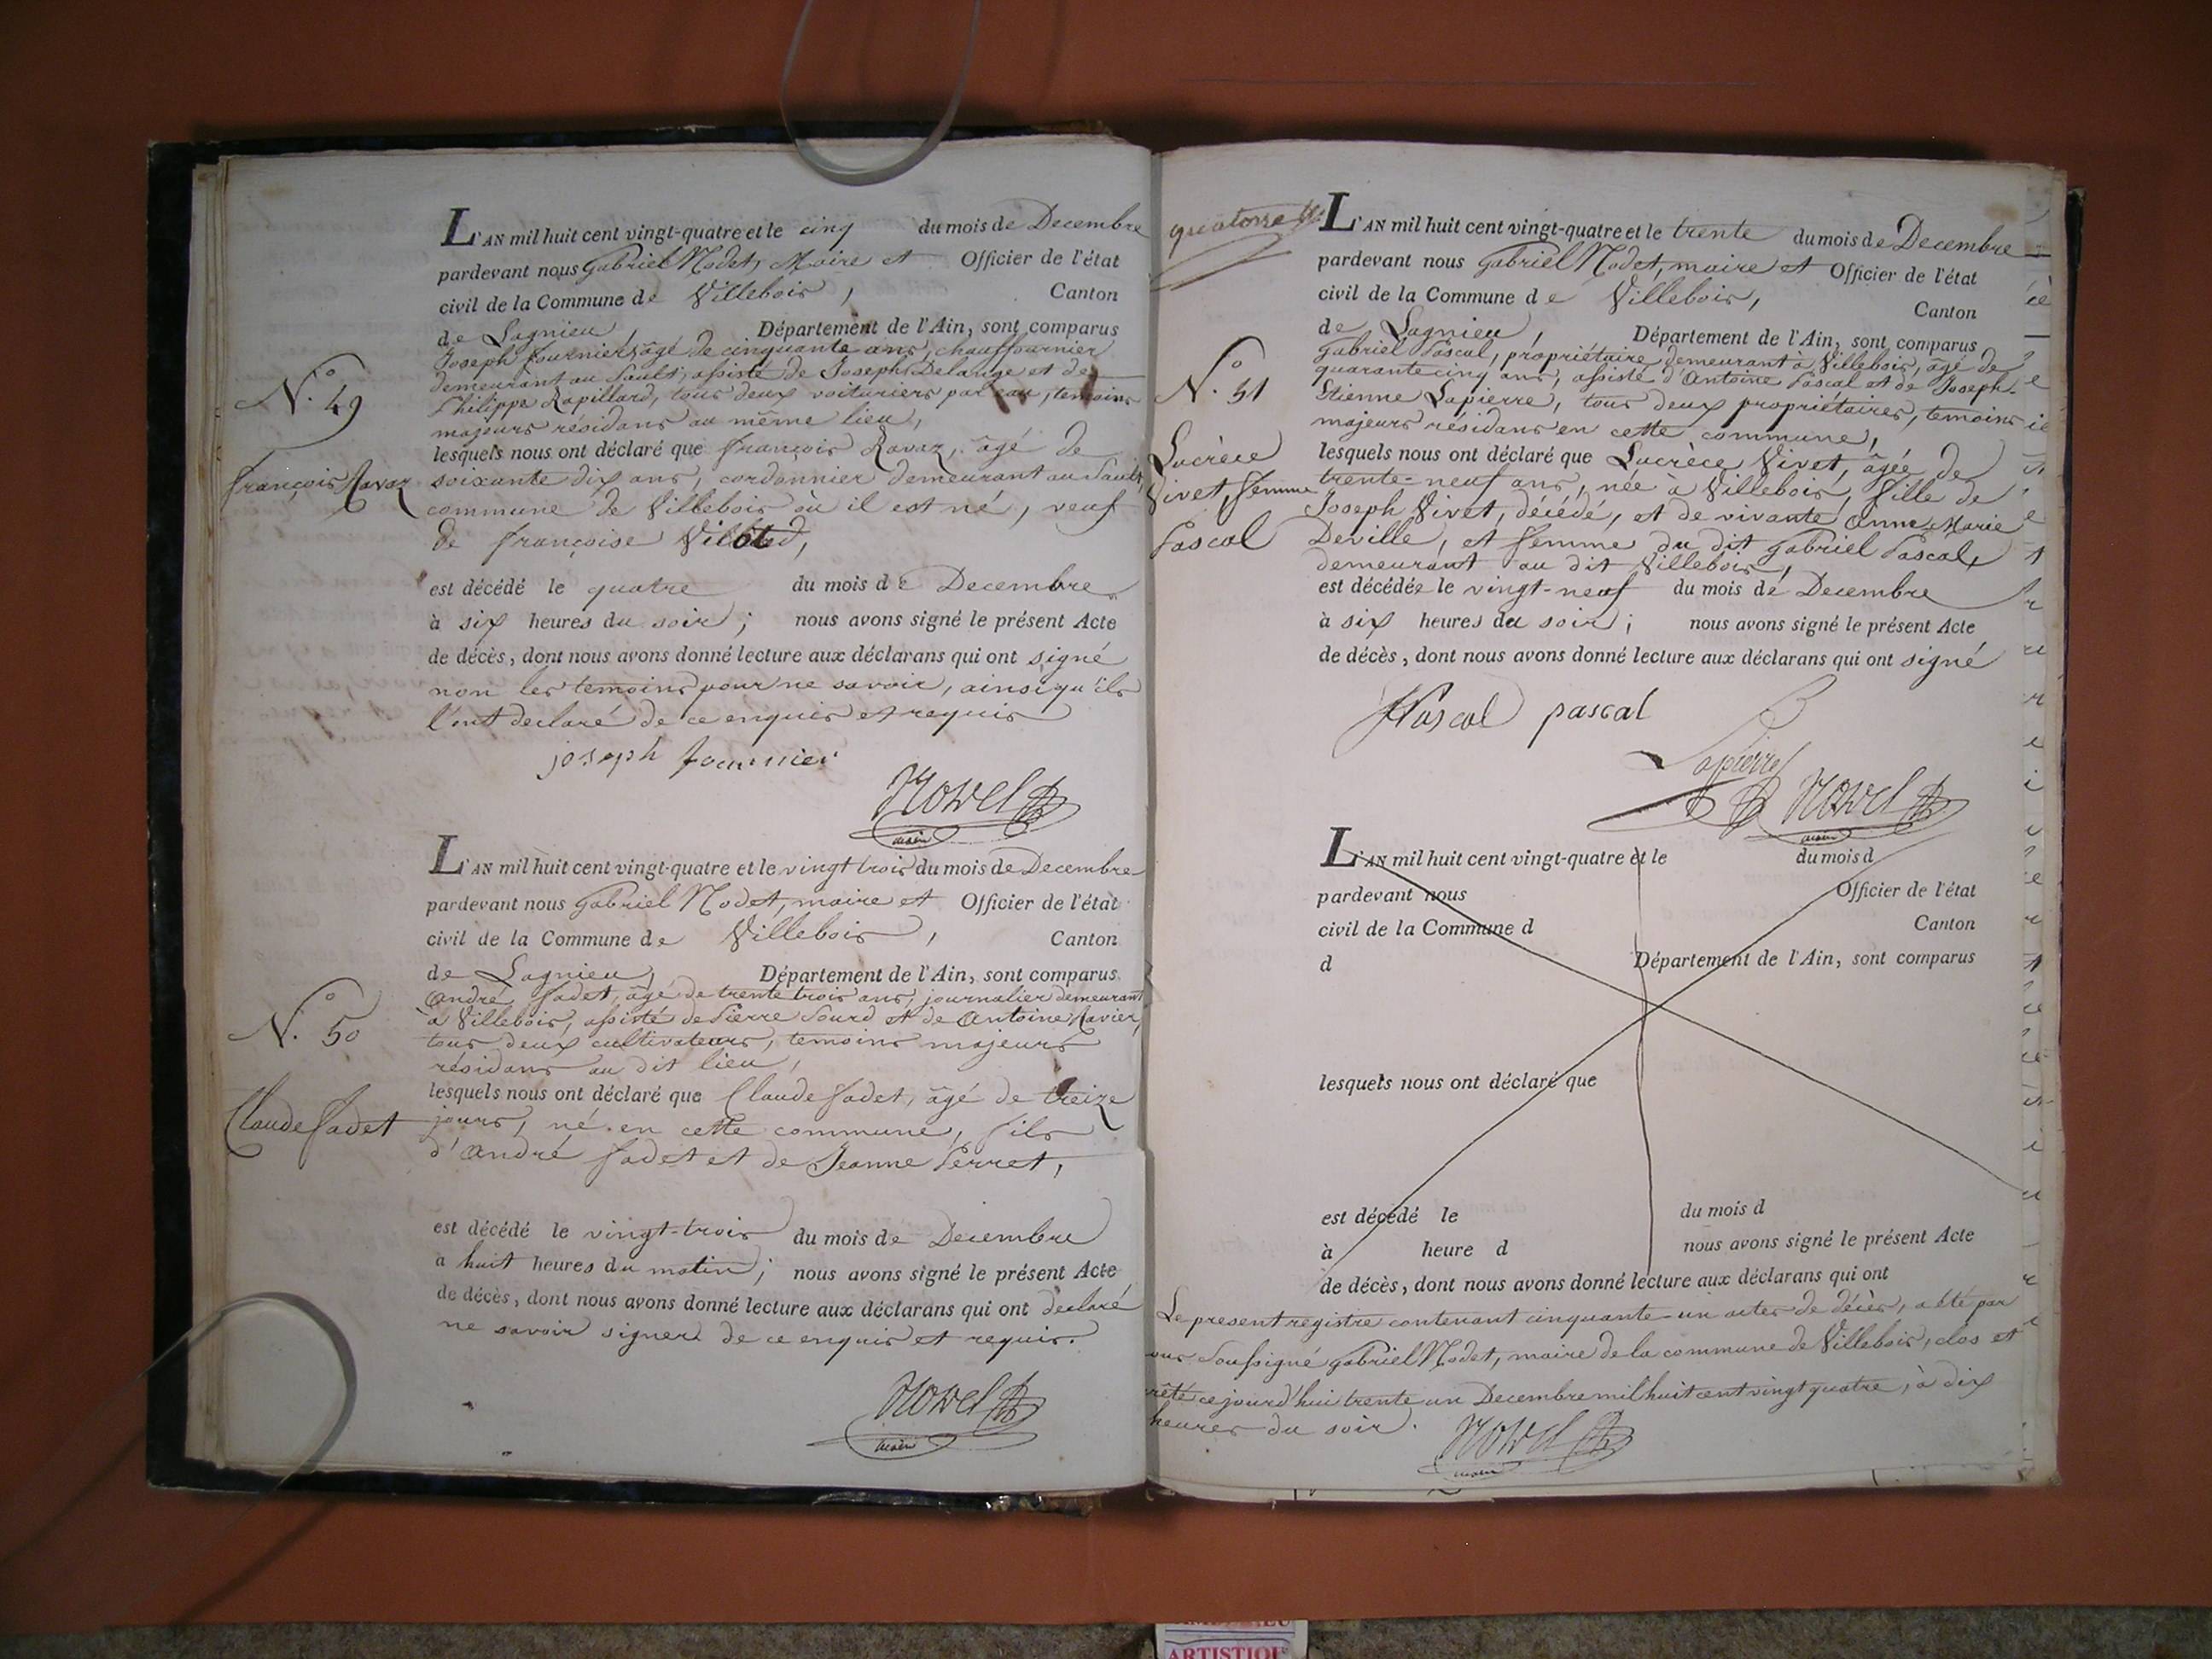 L'AN mil huit cent vingt-quatre et le cinq du mois de Decembre
pardevant nous Gabriel Nodet, Maire et Officier de l'état
civil de la Commune de Villebois, Canton
de Lagnieu, Département de l'Ain, sont comparus
Joseph fournier, âgé de cinquante ans, chauffournier
demeurant au Sault, assisté de Joseph Delange et de
Philippe Rapillard, tous deux voituriers par eau, temoins
majeurs résidans au même lieu,
N.o 49
lesquels nous ont déclaré que françois Ravaz, âgé de
françois Ravaz
soixante dix ans, cordonnier demeurant au Sault,
commune de Villebois où il est né, veuf
de françoise
est décédé le quatre du mois de Decembre
à six heures du soir; nous avons signé le présent Acte
de décès, dont nous avons donné lecture aux déclarans qui ont signé
non les temoins pour ne savoir, ainsi qu'ils
l'ont declaré de ce enquis et requis
joseph fournier
maire
L'AN mil huit cent vingt-quatre et le vingt trois du mois de Decembre
pardevant nous Gabriel Nodet, maire et Officier de l'état
civil de la Commune de Villebois, Canton
de Lagnieu, Département de l'Ain, sont comparus
André fadet, âgé de trente trois ans, journalier demeurant
à Villebois, assisté de Pierre Sourd et de Antoine Ravier,
tous deux cultivateurs, temoins majeurs
résidans au dit lieu,
N.o 50
lesquels nous ont déclaré que Claude fadet, âgé de treize
Claude fadet
jours, né en cette commune, fils
d'André fadet et de Jeanne Perret,
est décédé le vingt-trois du mois de Decembre
a huit heures du matin; nous avons signé le présent Acte
de décès, dont nous avons donné lecture aux déclarans qui ont declaré
ne savoir signer de ce enquis et requis.
maire
quatorze
L'AN mil huit cent vingt-quatre et le trente du mois de Decembre
pardevant nous Gabriel Nodet, maire et Officier de l'état
civil de la Commune de Villebois, Canton
de Lagnieu, Département de l'Ain, sont comparus
Gabriel Pascal, propriétaire demeurant à Villebois, âgé de
quarante cinq ans, assisté d'Antoine Pascal et de Joseph-
Etienne Lapierre, tous deux propriétaires, temoins
majeurs résidans en cette commune,
N.o 51
lesquels nous ont déclaré que Lucrèce Vivet, âgée de
Lucrèce
Vivet, femme
Pascal
trente-neuf ans, née à Villebois, fille de
Joseph Vivet, décédé, et de vivante Anne-Marie
Deville, et femme du dit Gabriel Pascal,
demeurant au dit Villebois,
est décédée le vingt-neuf du mois de Decembre
à six heures du soir; nous avons signé le présent Acte
de décès, dont nous avons donné lecture aux déclarans qui ont signé
Pascal pascal
Lapierre
maire
L'AN mil huit cent vingt-quatre et le du mois d
pardevant nous Officier de l'état
civil de la Commune d Canton
d Département de l'Ain, sont comparus
lesquels nous ont déclaré que
est décédé le du mois d
à heure d nous avons signé le présent Acte
de décès, dont nous avons donné lecture aux déclarans qui ont
Le present registre contenant cinquante-un actes de décès, a été par
nous soussigné Gabriel Nodet, maire de la commune de Villebois, clos et
rêté ce jourd'hui trente un Decembre mil huit cent vingt quatre, à dix
heures du soir.
maire
ARTISTIQU